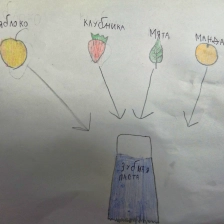 яблоко
клубника
мята
манда
зубная
паста